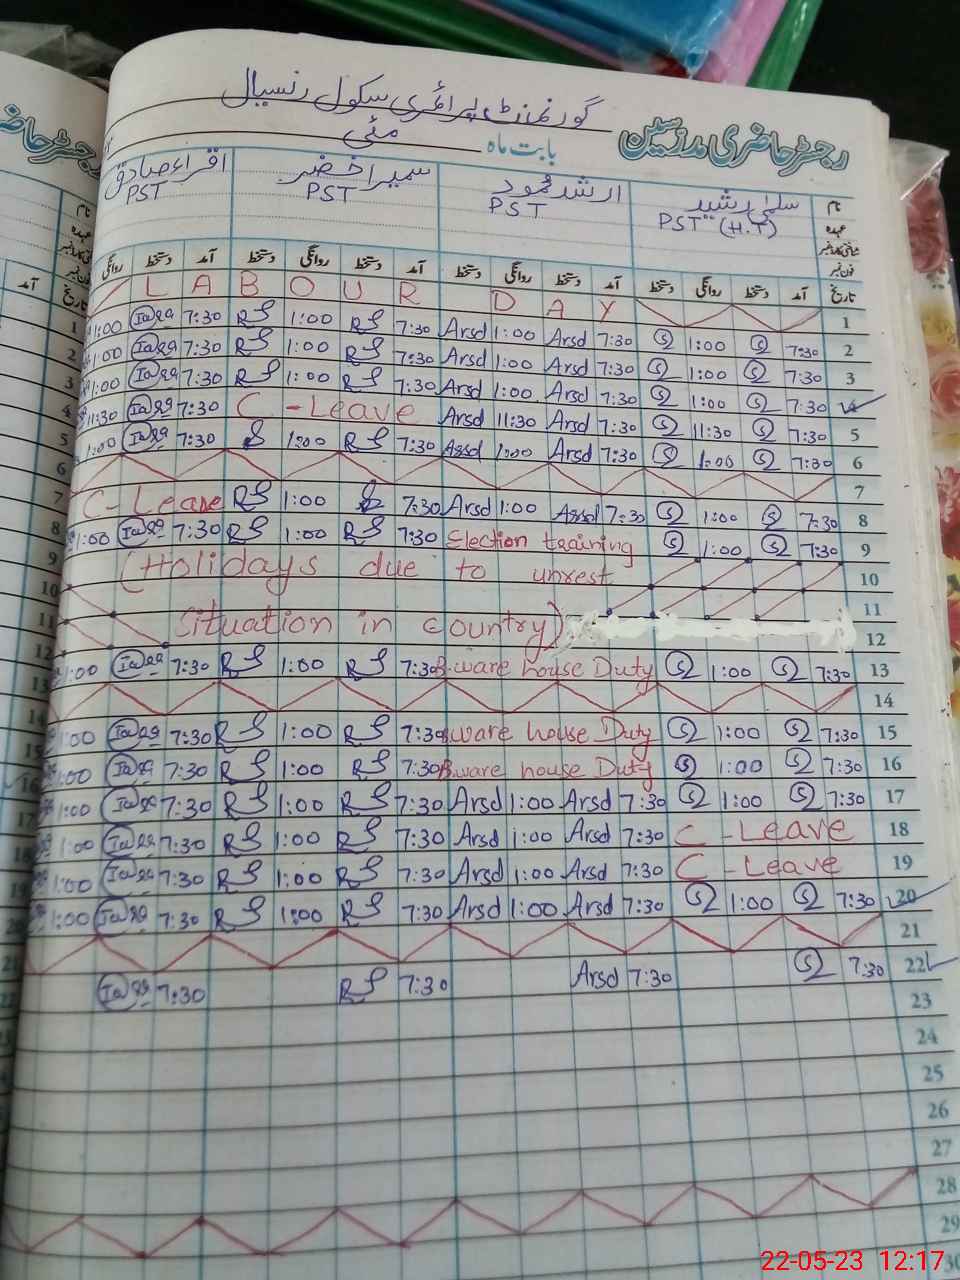 گورنمنٹ پرائمری سکول رنسیال
رجسٹر حاضری مدرسین بابت ماہ مئی
نام سلمیٰ رشید ارشد محمود سمیرا خضر اقراء صادق
عہدہ PST (H.T) PST PST PST
فون نمبر
تاریخ آمد دستخط روانگی دستخط آمد دستخط روانگی دستخط آمد دستخط روانگی دستخط آمد دستخط روانگی
LABOUR DAY 1
1:00 7:30 RS 1:00 RS 7:30 Arsd 1:00 Arsd 7:30 S 1:00 S 7:30 2
1:00 7:30 RS 1:00 RS 7:30 Arsd 1:00 Arsd 7:30 S 1:00 S 7:30 3
1:00 7:30 RS 1:00 RS 7:30 Arsd 1:00 Arsd 7:30 S 1:00 S 7:30 4
11:30 7:30 C-Leave Arsd 11:30 Arsd 7:30 S 11:30 S 7:30 5
1:00 7:30 S 1:00 RS 7:30 Arsd 1:00 Arsd 7:30 S 1:00 S 7:30 6
7
C-Leave RS 1:00 7:30 Arsd 1:00 Arsd 7:30 S 1:00 S 7:30 8
1:00 7:30 RS 1:00 RS 7:30 Election training S 1:00 S 7:30 9
(Holidays due to unrest 10
11
Situation in country) 12
1:00 7:30 RS 1:00 RS 7:30 B.ware house Duty S 1:00 S 7:30 13
14
1:00 7:30 RS 1:00 RS 7:30 B.ware house Duty S 1:00 S 7:30 15
1:00 7:30 RS 1:00 RS 7:30 B.ware house Duty S 1:00 S 7:30 16
1:00 7:30 RS 1:00 RS 7:30 Arsd 1:00 Arsd 7:30 S 1:00 S 7:30 17
1:00 7:30 RS 1:00 RS 7:30 Arsd 1:00 Arsd 7:30 C-Leave 18
1:00 7:30 RS 1:00 RS 7:30 Arsd 1:00 Arsd 7:30 C-Leave 19
1:00 7:30 RS 1:00 RS 7:30 Arsd 1:00 Arsd 7:30 S 1:00 S 7:30 20
21
7:30 RS 7:30 Arsd 7:30 S 7:30 22
23
24
25
26
27
28
29
30
22-05-23 12:17